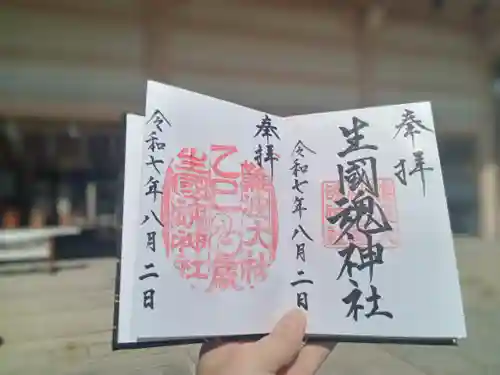 奉拝
生國魂神社
令和七年八月二日
奉拝
難波大社
乙巳乃歳
生國魂神社
令和七年八月二日